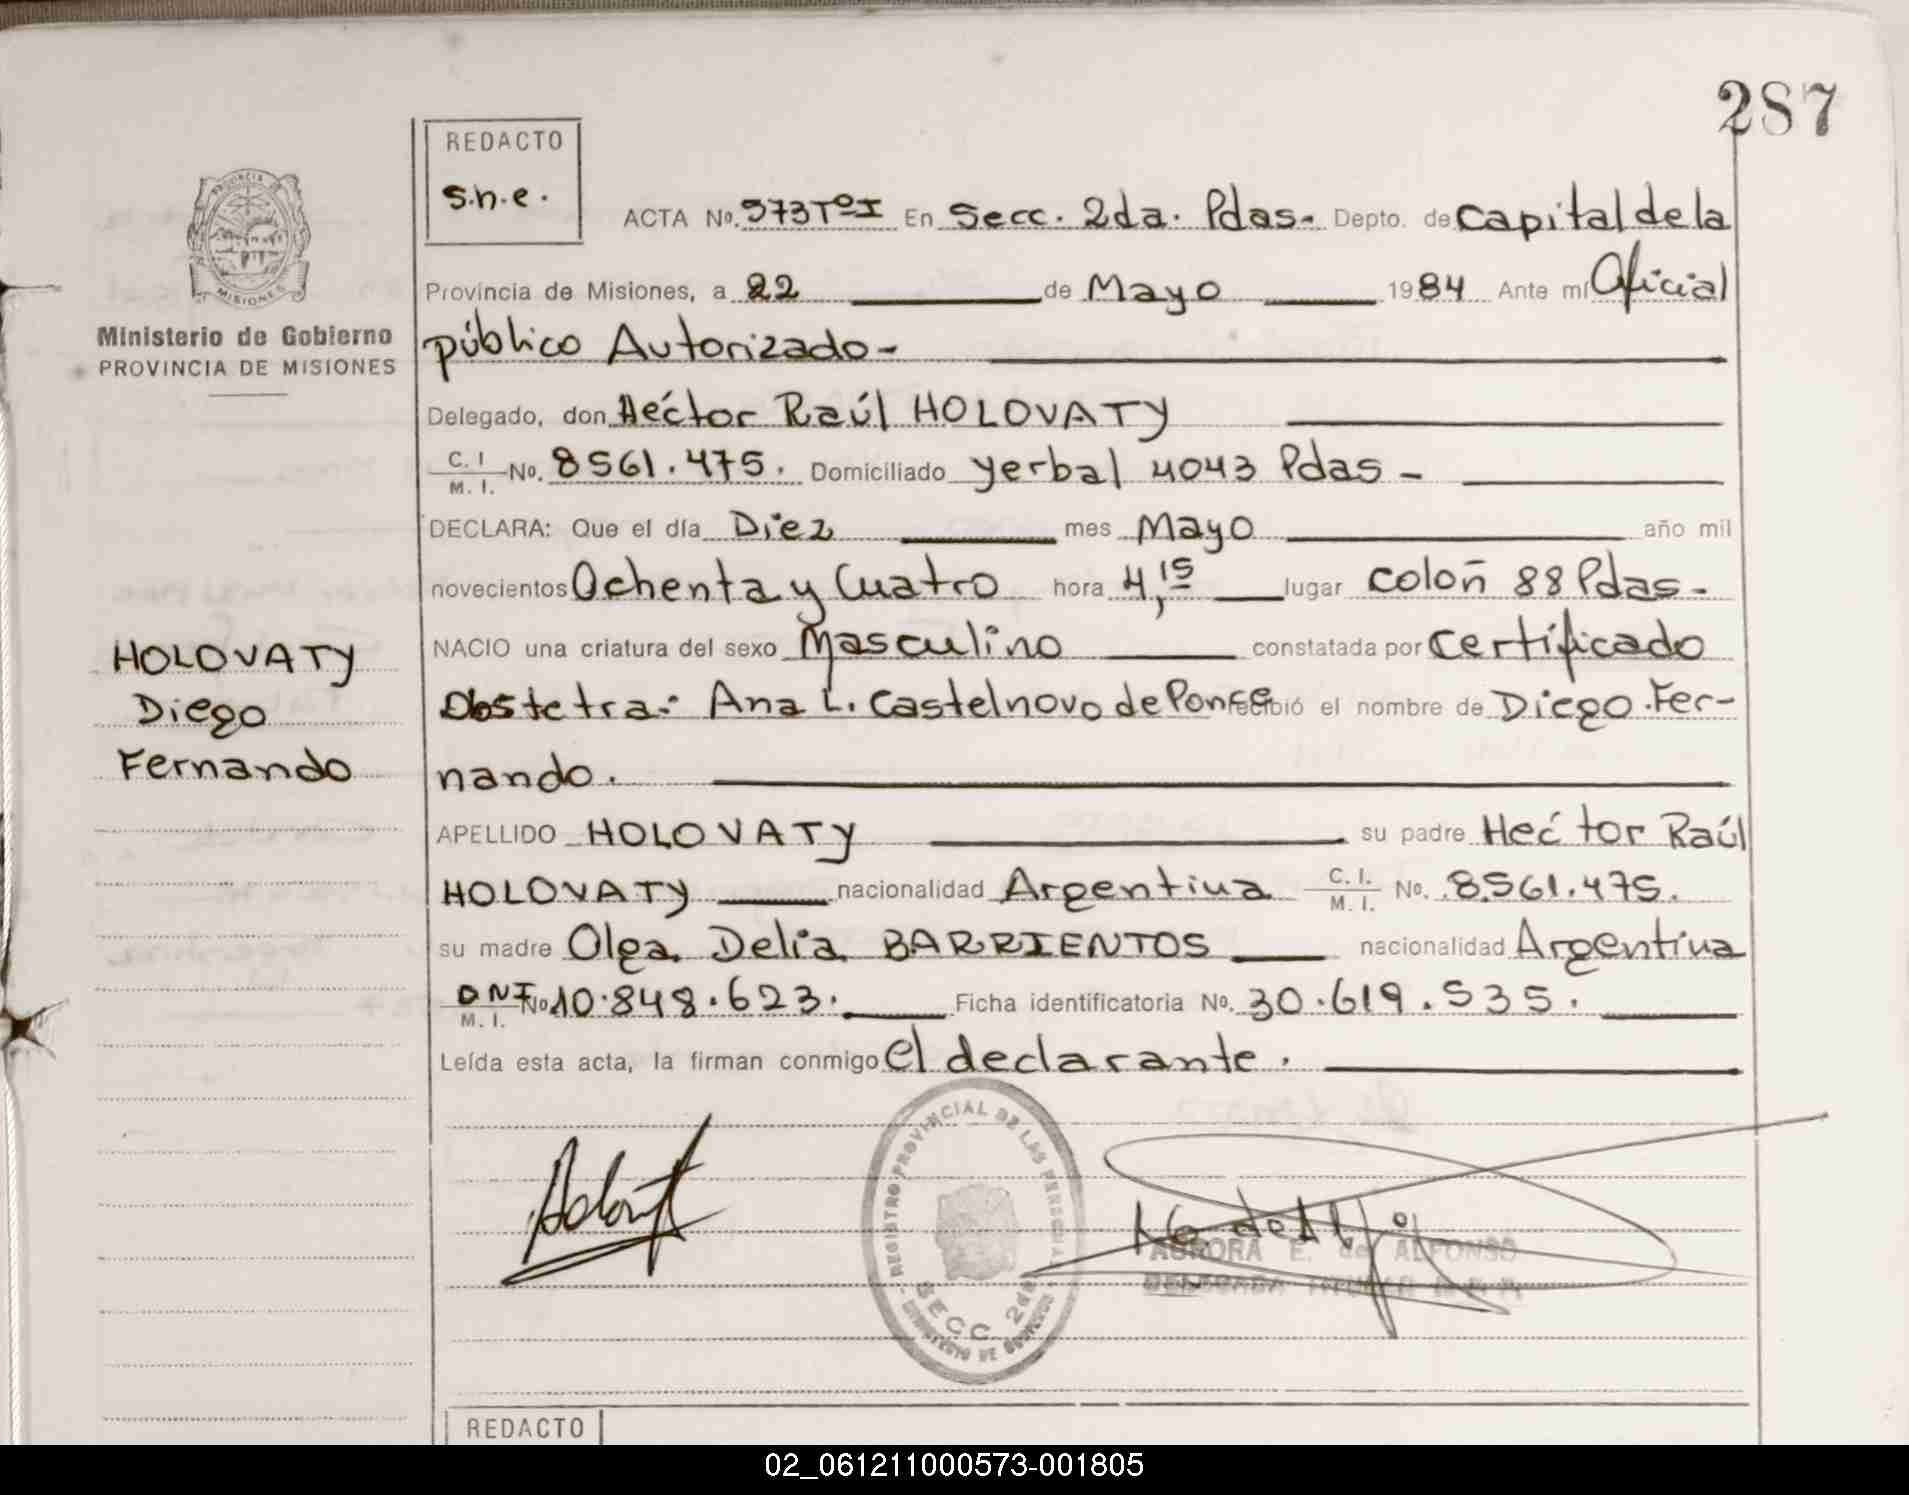 287
REDACTO
s.n.e.
PROVINCIA DE
MISIONES
Ministerio de Gobierno
PROVINCIA DE MISIONES
ACTA No. 573 Tº I En Secc. 2da. Pdas- Depto. de Capital de la
Provincia de Misiones, a 22 de Mayo 1984 Ante mí Oficial
público Autorizado-
Delegado, don Héctor Raúl HOLOVATY
C. I. M. I. No. 8561.475. Domiciliado yerbal 4043 Pdas -
DECLARA: Que el día Diez mes Mayo año mil
novecientos Ochenta y Cuatro hora 4,15 lugar Colón 88 Pdas-
NACIO una criatura del sexo Masculino constatada por Certificado
HOLOVATY
Diego
Fernando
Obstetra: Ana L. Castelnovo de Ponce recibió el nombre de Diego Fer-
nando.
APELLIDO HOLOVATY su padre Héctor Raúl
HOLOVATY nacionalidad Argentina C. I. M. I. No. 8.561.475.
su madre Olga Delia BARRIENTOS nacionalidad Argentina
DNI M. I. No 10.848.623. Ficha identificatoria No. 30.619.535.
Leída esta acta, la firman conmigo el declarante.
REGISTRO PROVINCIAL DE LAS PERSONAS
SECC. 2da
MINISTERIO DE GOBIERNO
AURORA E. de ALFONSO
DELEGADA TITULAR
REDACTO
02_061211000573-001805